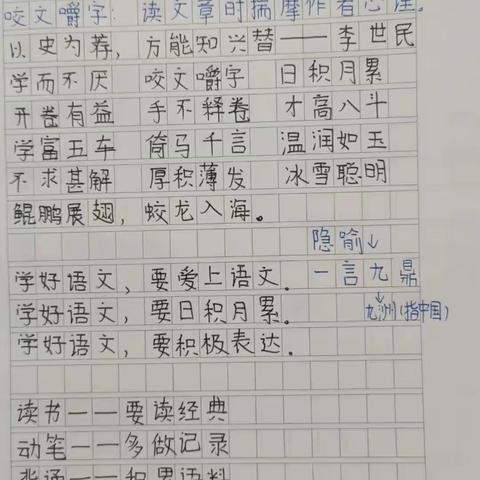 咬文嚼字：读文章时揣摩作者心理。
以史为荐，方能知兴替——李世民
学而不厌 咬文嚼字 日积月累
开卷有益 手不释卷 才高八斗
学富五车 倚马千言 温润如玉
不求甚解 厚积薄发 冰雪聪明
鲲鹏展翅，蛟龙入海。
隐喻↓
学好语文，要爱上语文．一言九鼎
学好语文，要日积月累。九洲(指中国)
学好语文，要积极表达．
读书——要读经典
动笔——多做记录